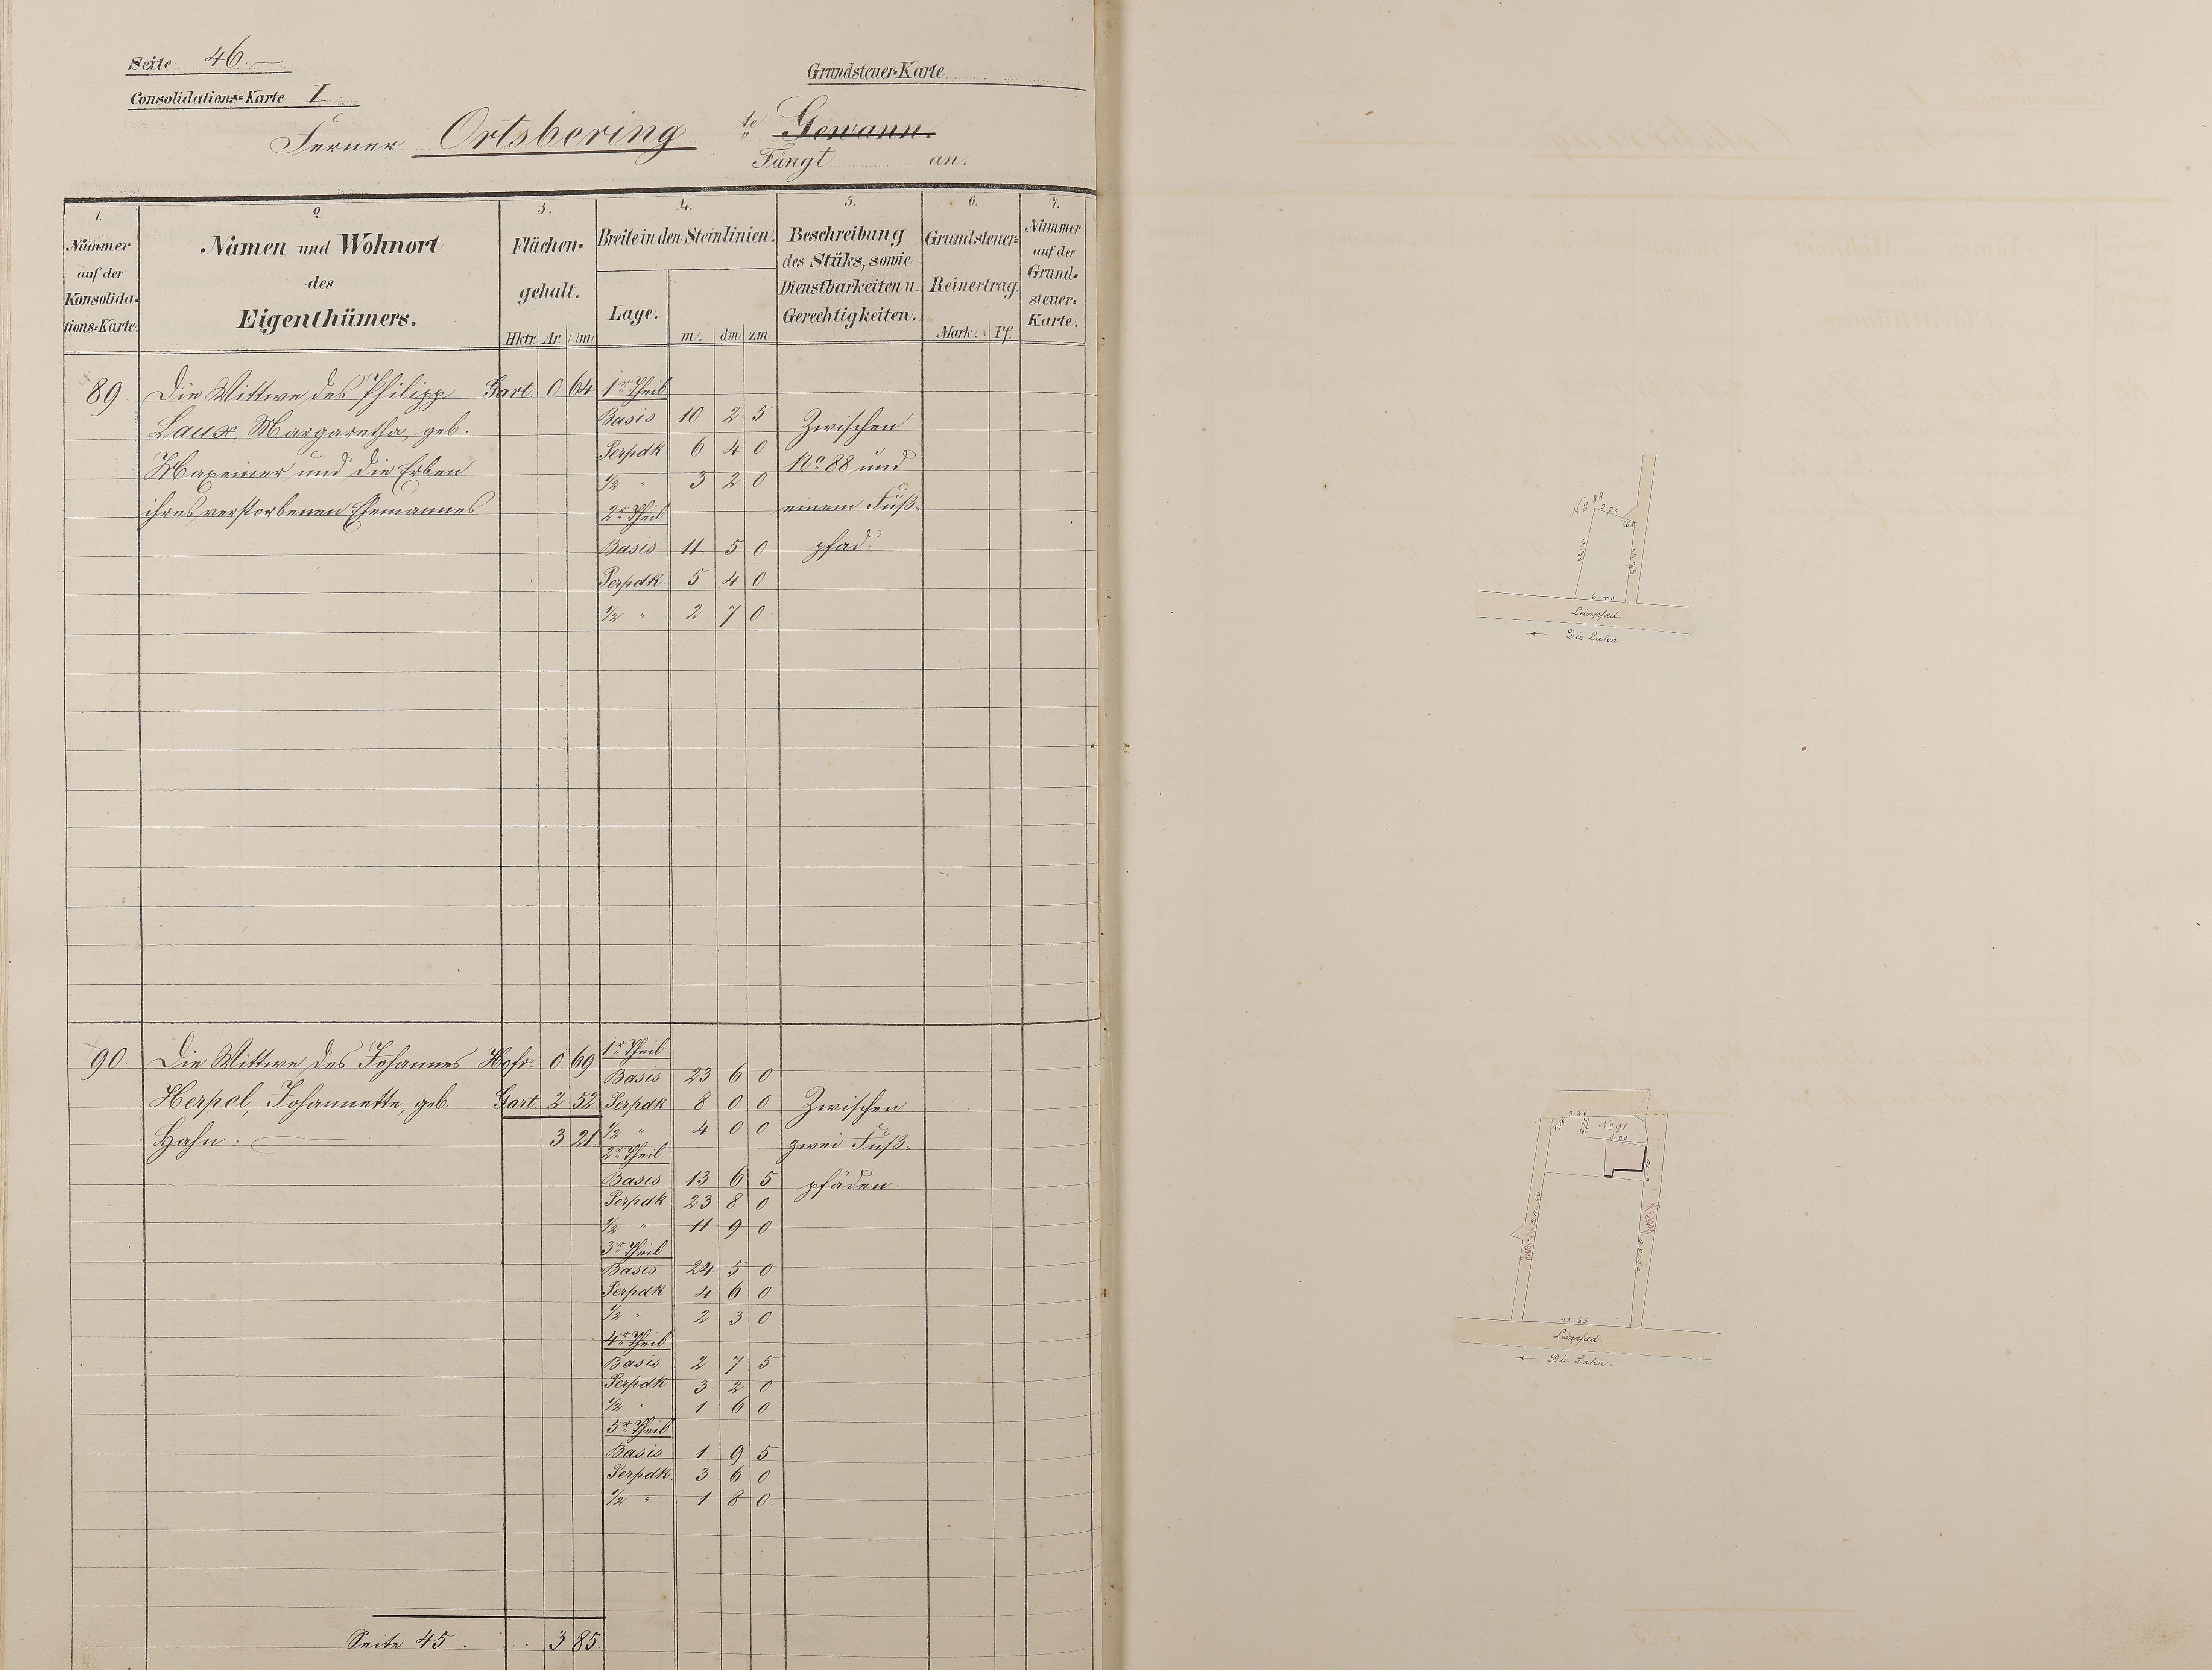 Seite 46.
Grundsteuer=Karte
Consolidations=Karte I
Ferner Ortsbering te Gewann.
Fängt an.
1. 2 3. 4. 5. 6. 7.
Nummer auf der Konsolida=tions=Karte.
Namen und Wohnort
des
Eigenthümers.
Flächen=
gehalt.
Hktr. Ar □m
Breite in den Steinlinien.
Lage. m. dm zm
Beschreibung
des Stüks, sowie
Dienstbarkeiten u.
Gerechtigkeiten.
Grundsteuer=
Reinertrag.
Mark. Pf.
Nummer
auf der
Grund=
steuer=
Karte.
89 Die Wittwe des Philipp Gart. 0 64 1r Theil
Laux, Margaretha, geb. Basis 10 2 5 Zwischen
Maxeiner und die Erben Perpdk 6 4 0 No 88 und
ihres verstorbenen Ehemannes. 1/2 " 3 2 0 einem Fuß=
2r Theil
Basis 11 5 0 pfad.
Perpdk 5 4 0
1/2 " 2 7 0
90 Die Wittwe des Johannes Hofr. 0 69 1r Theil
Basis 23 6 0
Herpel, Johannette, geb. Gart. 2 52 Perpdk 8 0 0 Zwischen
Hahn. 3 21 1/2 " 4 0 0 zwei Fuß=
2r Theil
Basis 13 6 5 pfäden.
Perpdk 23 8 0
1/2 " 11 9 0
3r Theil
Basis 24 5 0
Perpdk 4 6 0
1/2 " 2 3 0
4r Theil
Basis 2 7 5
Perpdk 3 2 0
1/2 " 1 6 0
5r Theil
Basis 1 9 5
Perpdk 3 6 0
1/2 " 1 8 0
Seite 45. . . 3 85.
No 88
1.65
6.40
Leinpfad
Die Lahn
No 91
24.50
13.65
Leinpfad
Die Lahn.